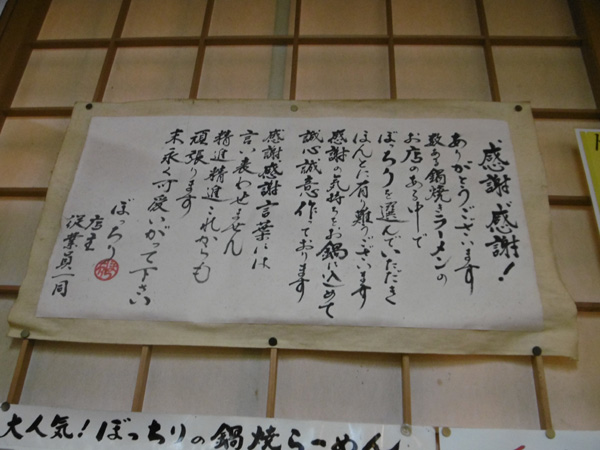 感謝感謝!
ありがとうございます
数ある鍋焼ラーメンの
お店のある中で
ぼちりを選んでいただき
ほんとに有り難うございます
感謝の気持ちをお鍋に込めて
誠心誠意作ております
感謝感謝言葉には
言い表わせません
精進精進これからも
頑張ります
末永く可愛いがって下さい
ぼっちり
店主
従業員一同
大人気!ぼっちりの鍋焼らーめん